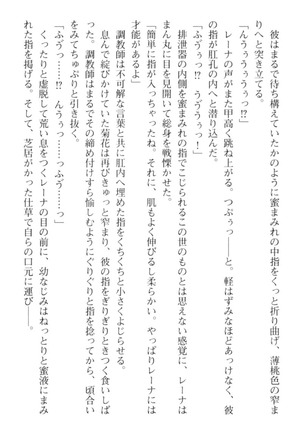 彼はまるで待ち構えていたかのように蜜まみれの中指をくっと折り曲げ、薄桃色の窄ま
りへと突き立てる。
「んうぅううぅっ!?」
レーナの声がまた甲高く跳ね上がる。つぷぅっ――と。軽はずみなほどあっけなく、彼
の指が肛孔の内へと潜り込んだ。
「ふうっっ!? うぅううっ!?」
排泄器の内側を蜜まみれの指でこじられるこの世のものとは思えない感覚に、レーナは
まん丸に目を見開いて総身を戦慄かせた。
「簡単に指が入っちゃったね。それに、肌もよく伸びるし柔らかい。やっぱりレーナには
才能があるよ」
調教師は不可解な言葉と共に肛内へ埋めた指をくちくちと小さくよじらせる。
息んで綻びかけていた菊花は再びきゅっと窄まり、彼の指をぎりぎりときつく食い締め
た。調教師はまるでその締め付けすら愉しむようにぐりぐりと指を捻ってから、頃合い
をみてちゅぷりと引き抜く。
「ふぅっ……っ んうぅっ……っふぅ……っ」
くったりと虚脱して荒い息をつくレーナの目の前に、幼なじみはねっとりと蜜液にまみ
れた指を掲げる。そして、芝居がかった仕草で自らの口元に運び――。